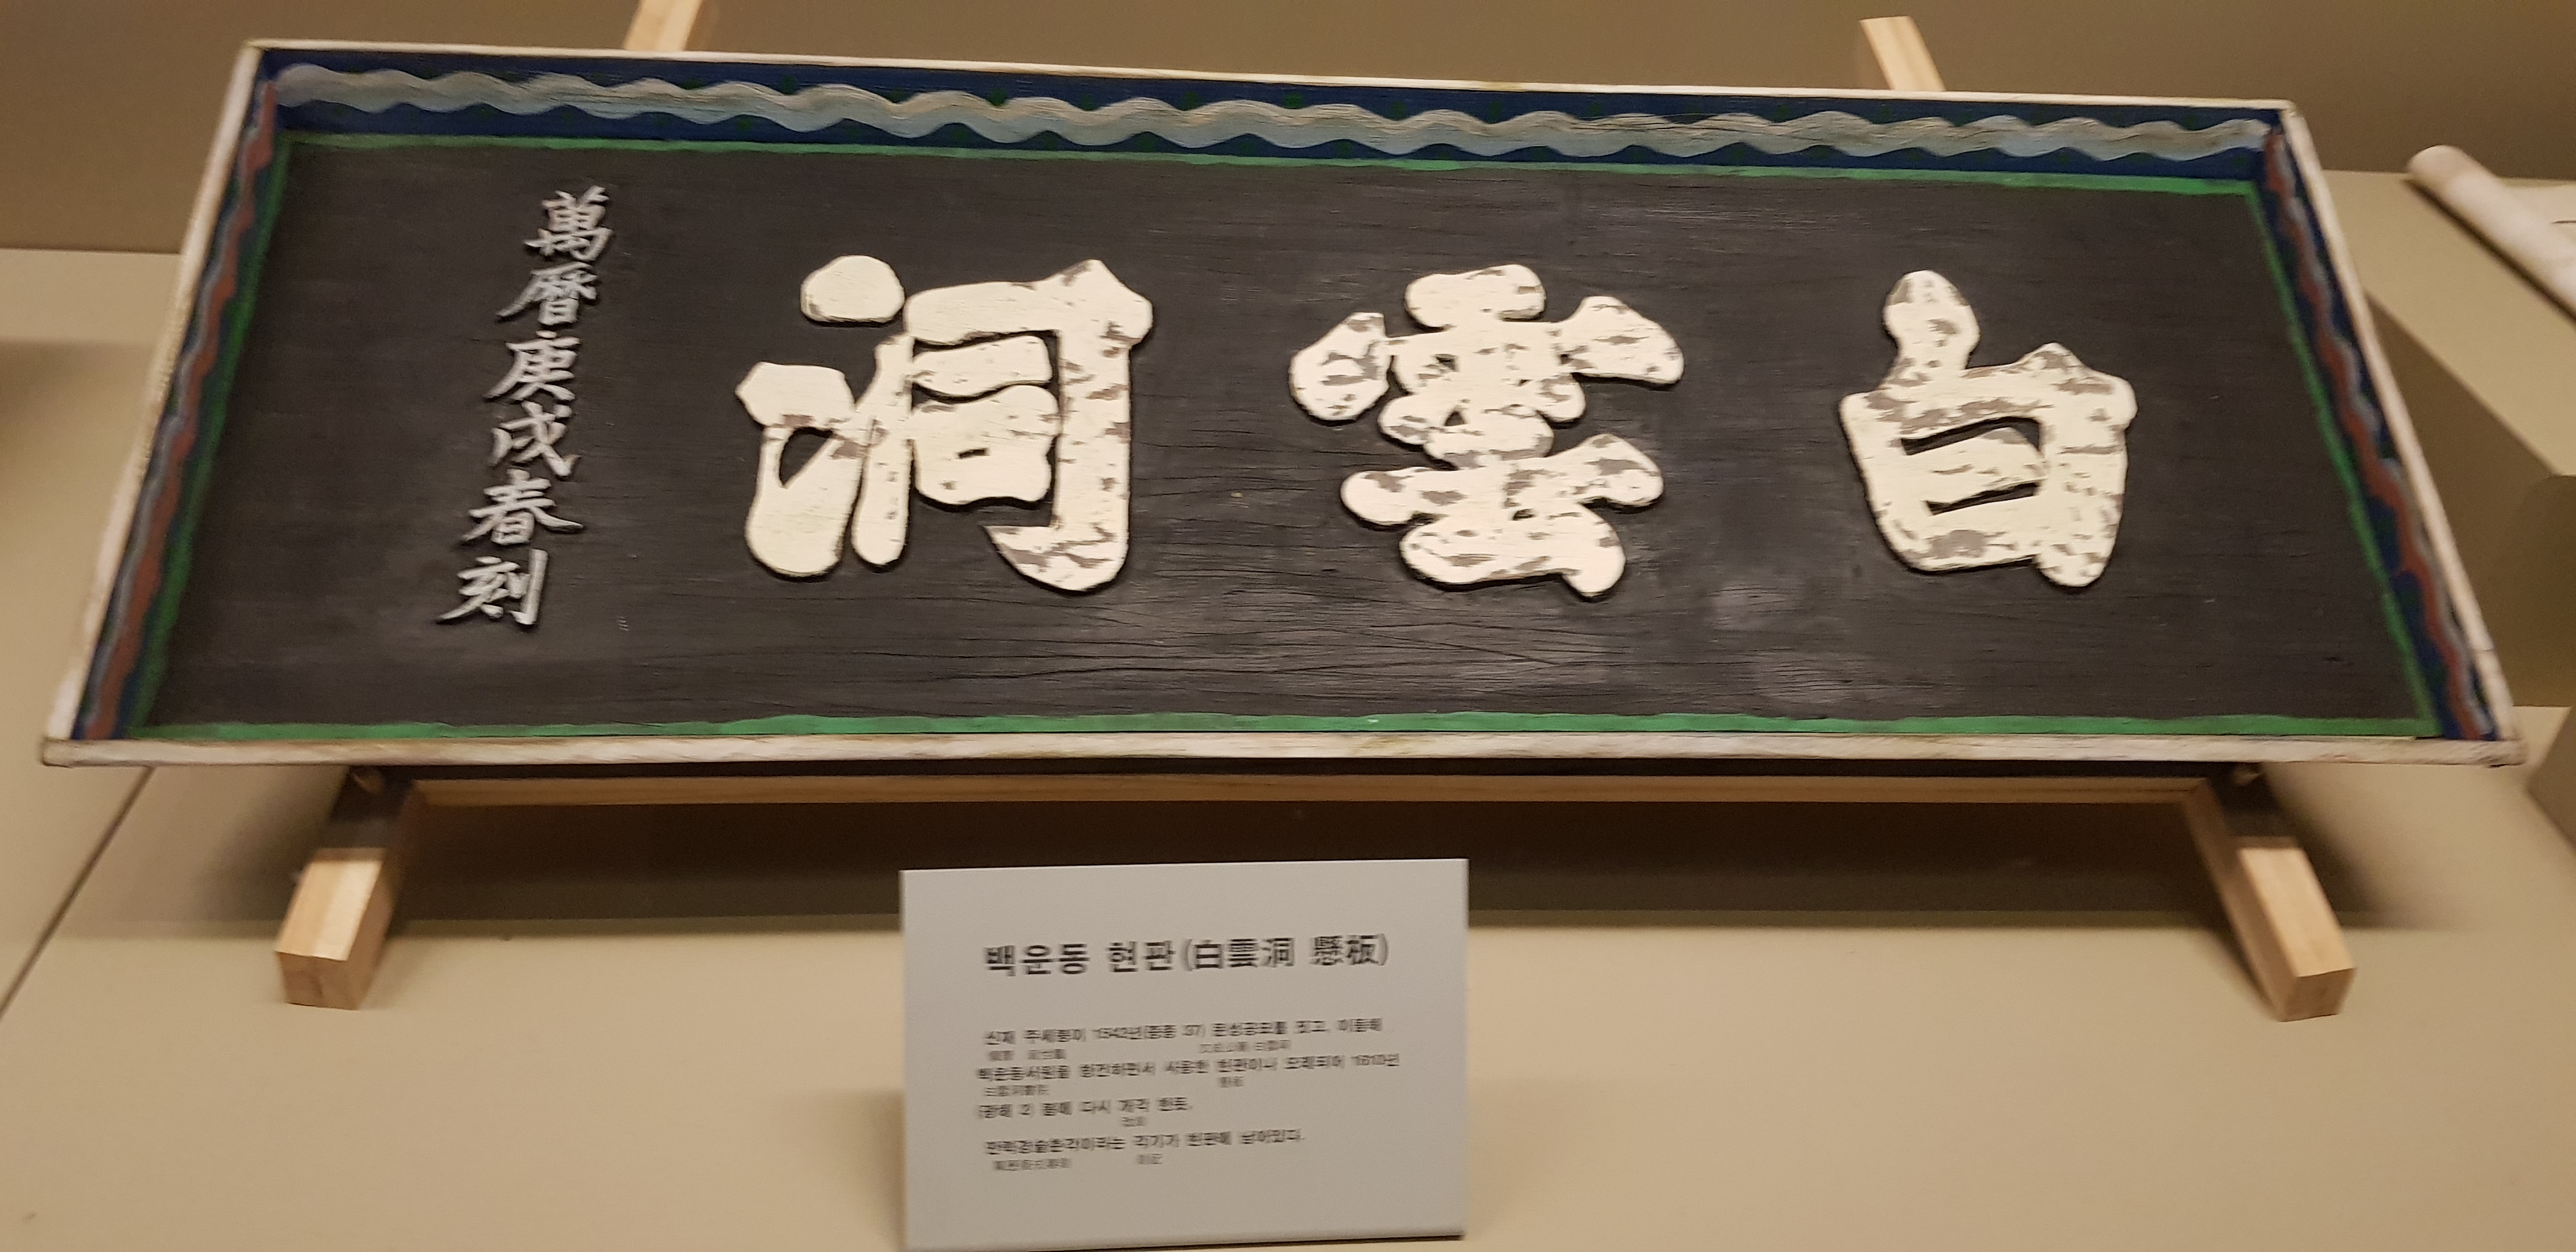 白雲洞
萬曆庚戌春刻
백운동 현판(白雲洞 懸板)
신재 주세붕이 1542년(중종 37) 문성공묘를 짓고, 이듬해
백운동서원을 창건하면서 사용한 현판이나 오래되어 1610년
(광해 2) 봄에 다시 개각 한듯.
만력경술춘각이라는 각기가 현판에 남아있다.